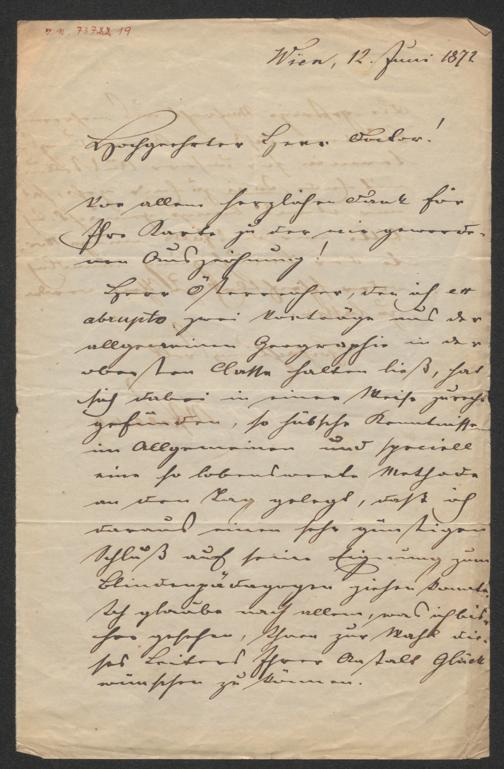 Wien, 12. Juni 1872
Hochgeehrter Herr Doctor!
Vor allem herzlichen Dank für
Ihre Karte zu der mir geworde-
nen Auszeichnung!
Herr Österreicher, den ich ex
abrupto, zwei Vorträge aus der
allgemeinen Geographie in der
obersten Classe halten ließ, hat
sich dabei in einer Weise zurecht
gefunden, so hübsche Kenntnisse
im Allgemeinen und speciell
eine so lobenswerte Methode
an den Tag gelegt, daß ich
daraus einen sehr günstigen
Schluß auf seine Eignung zum
Blindenpädagogen ziehen konnte.
Ich glaube nach allem, was ich bis-
her gesehen, Ihnen zur Wahl die-
ses Leiters Ihrer Anstalt Glück
wünschen zu können.